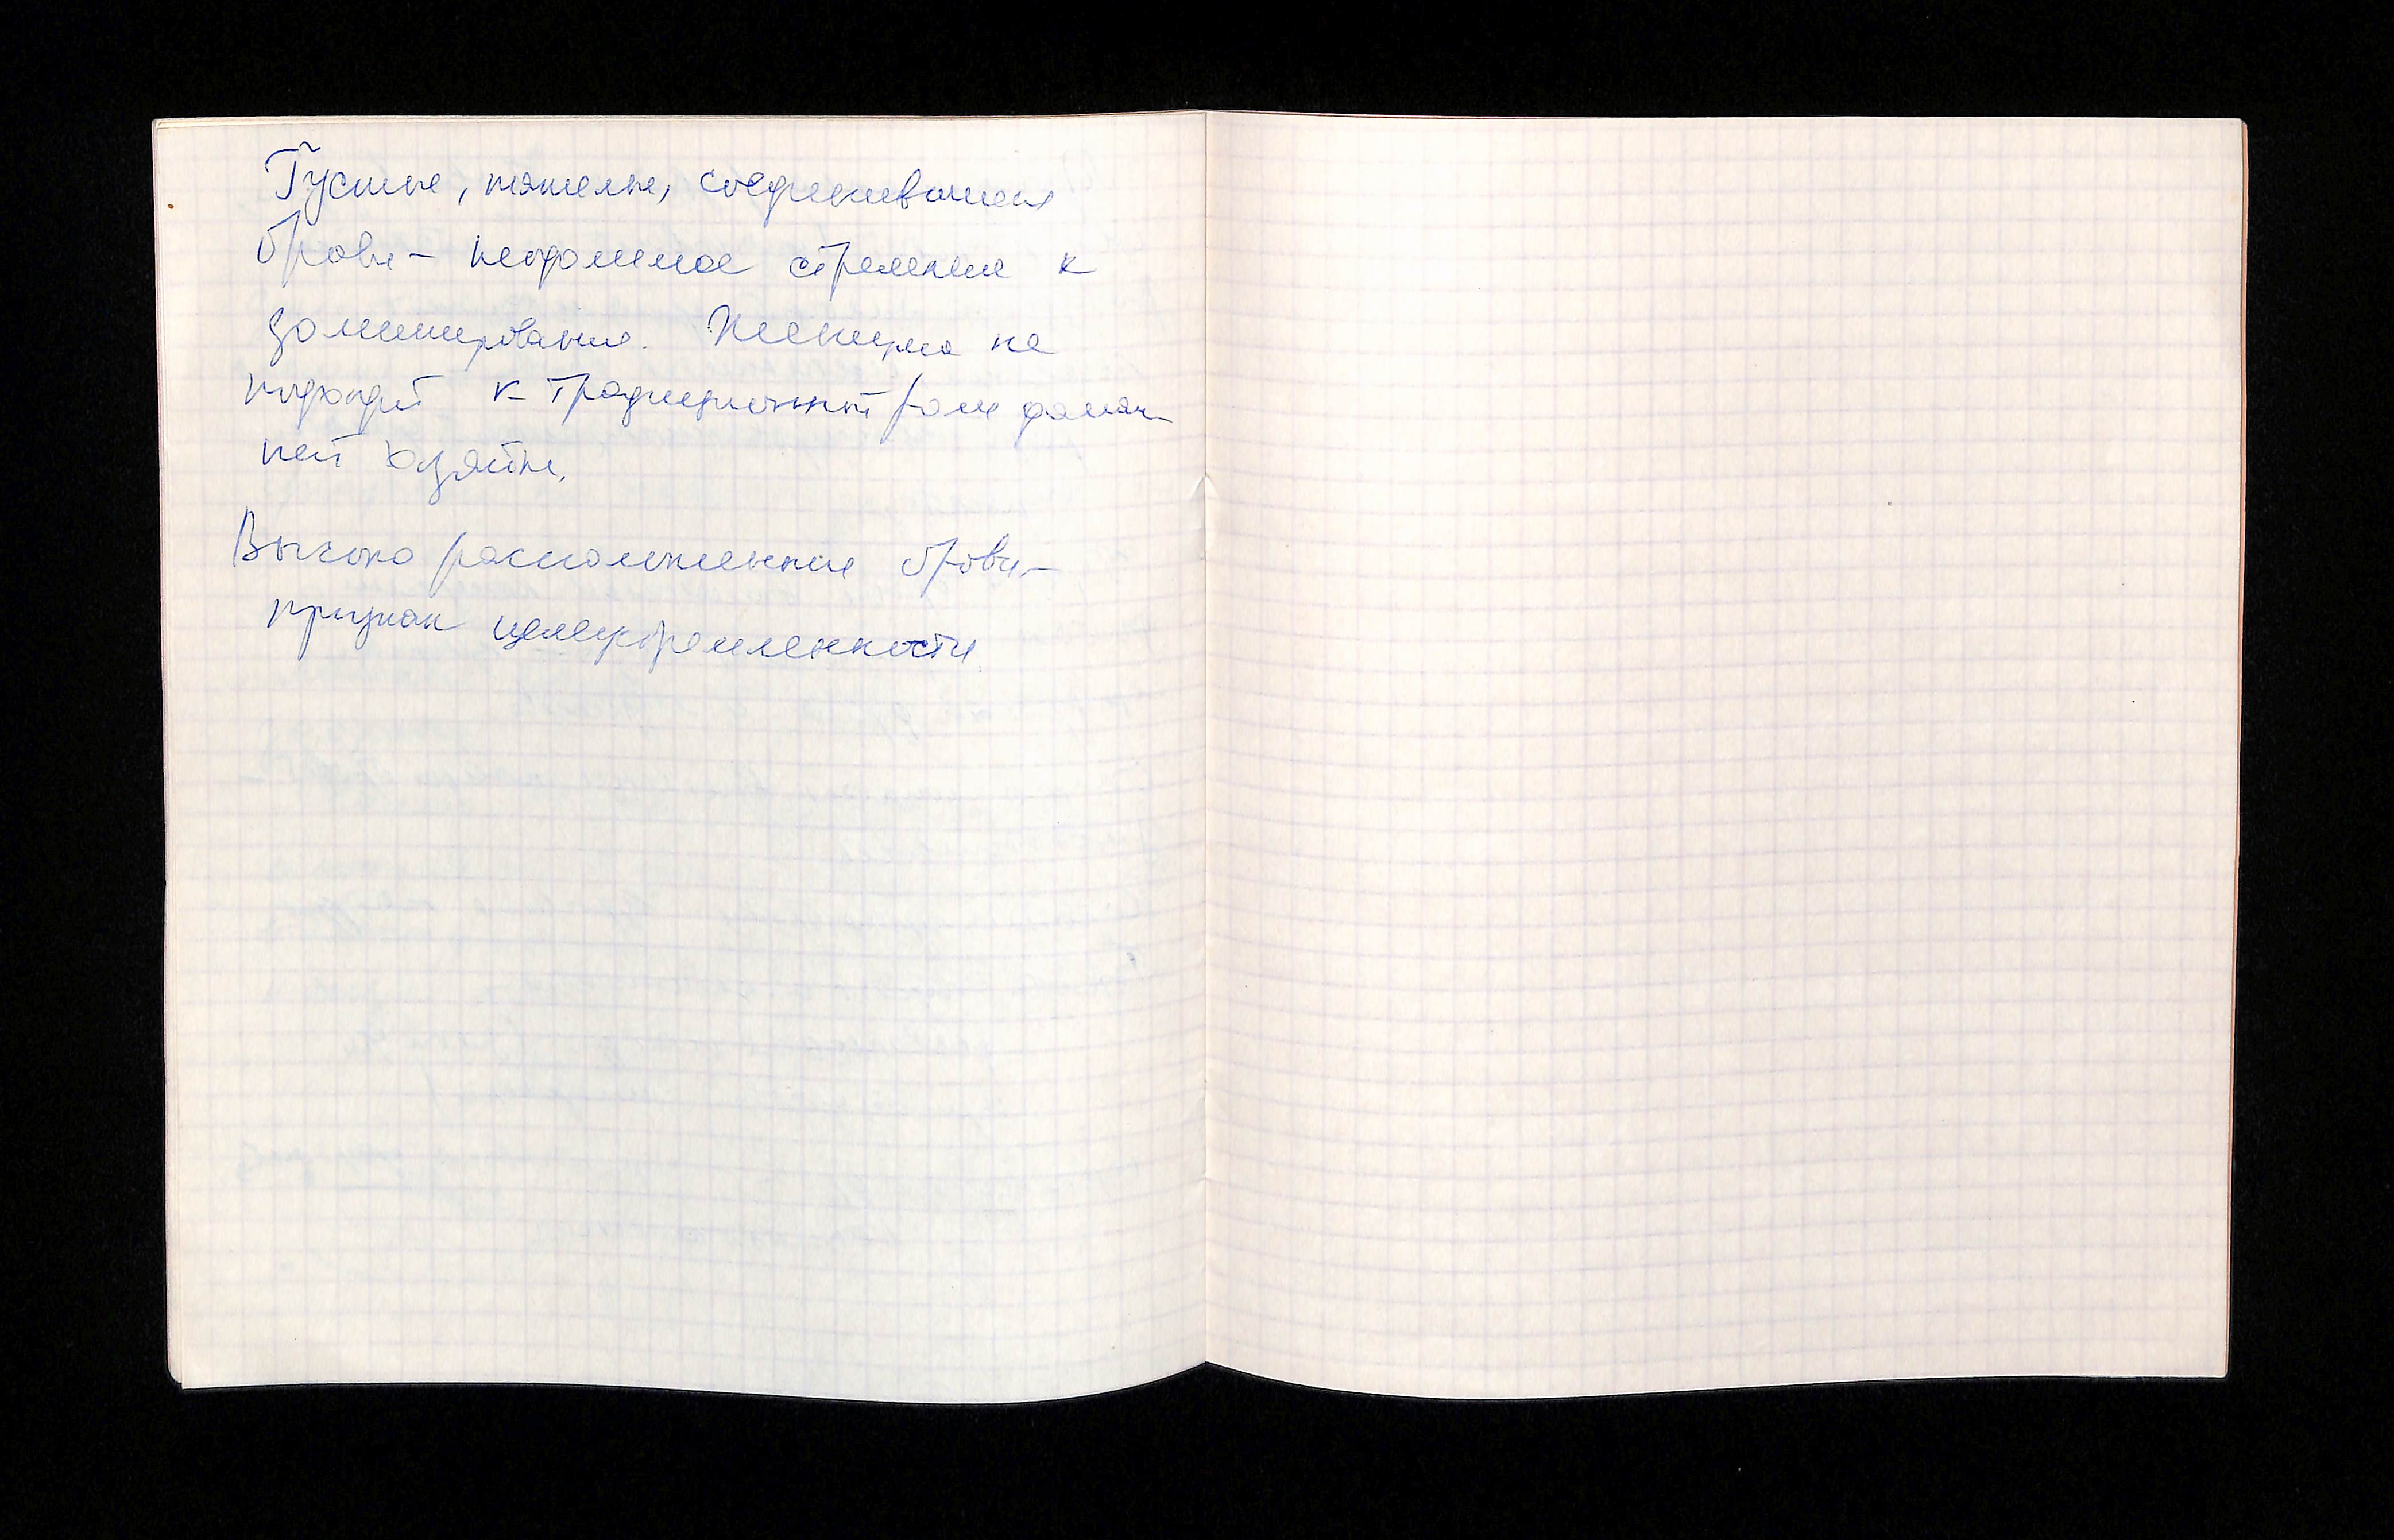 Густые, тяжелые, соединившиеся
брови – неуемное стремление к
доминированию. Женщина не
подходит к традиционной роли домаш-
ней хозяйки.
Высоко расположенные брови –
признак целеустремленности